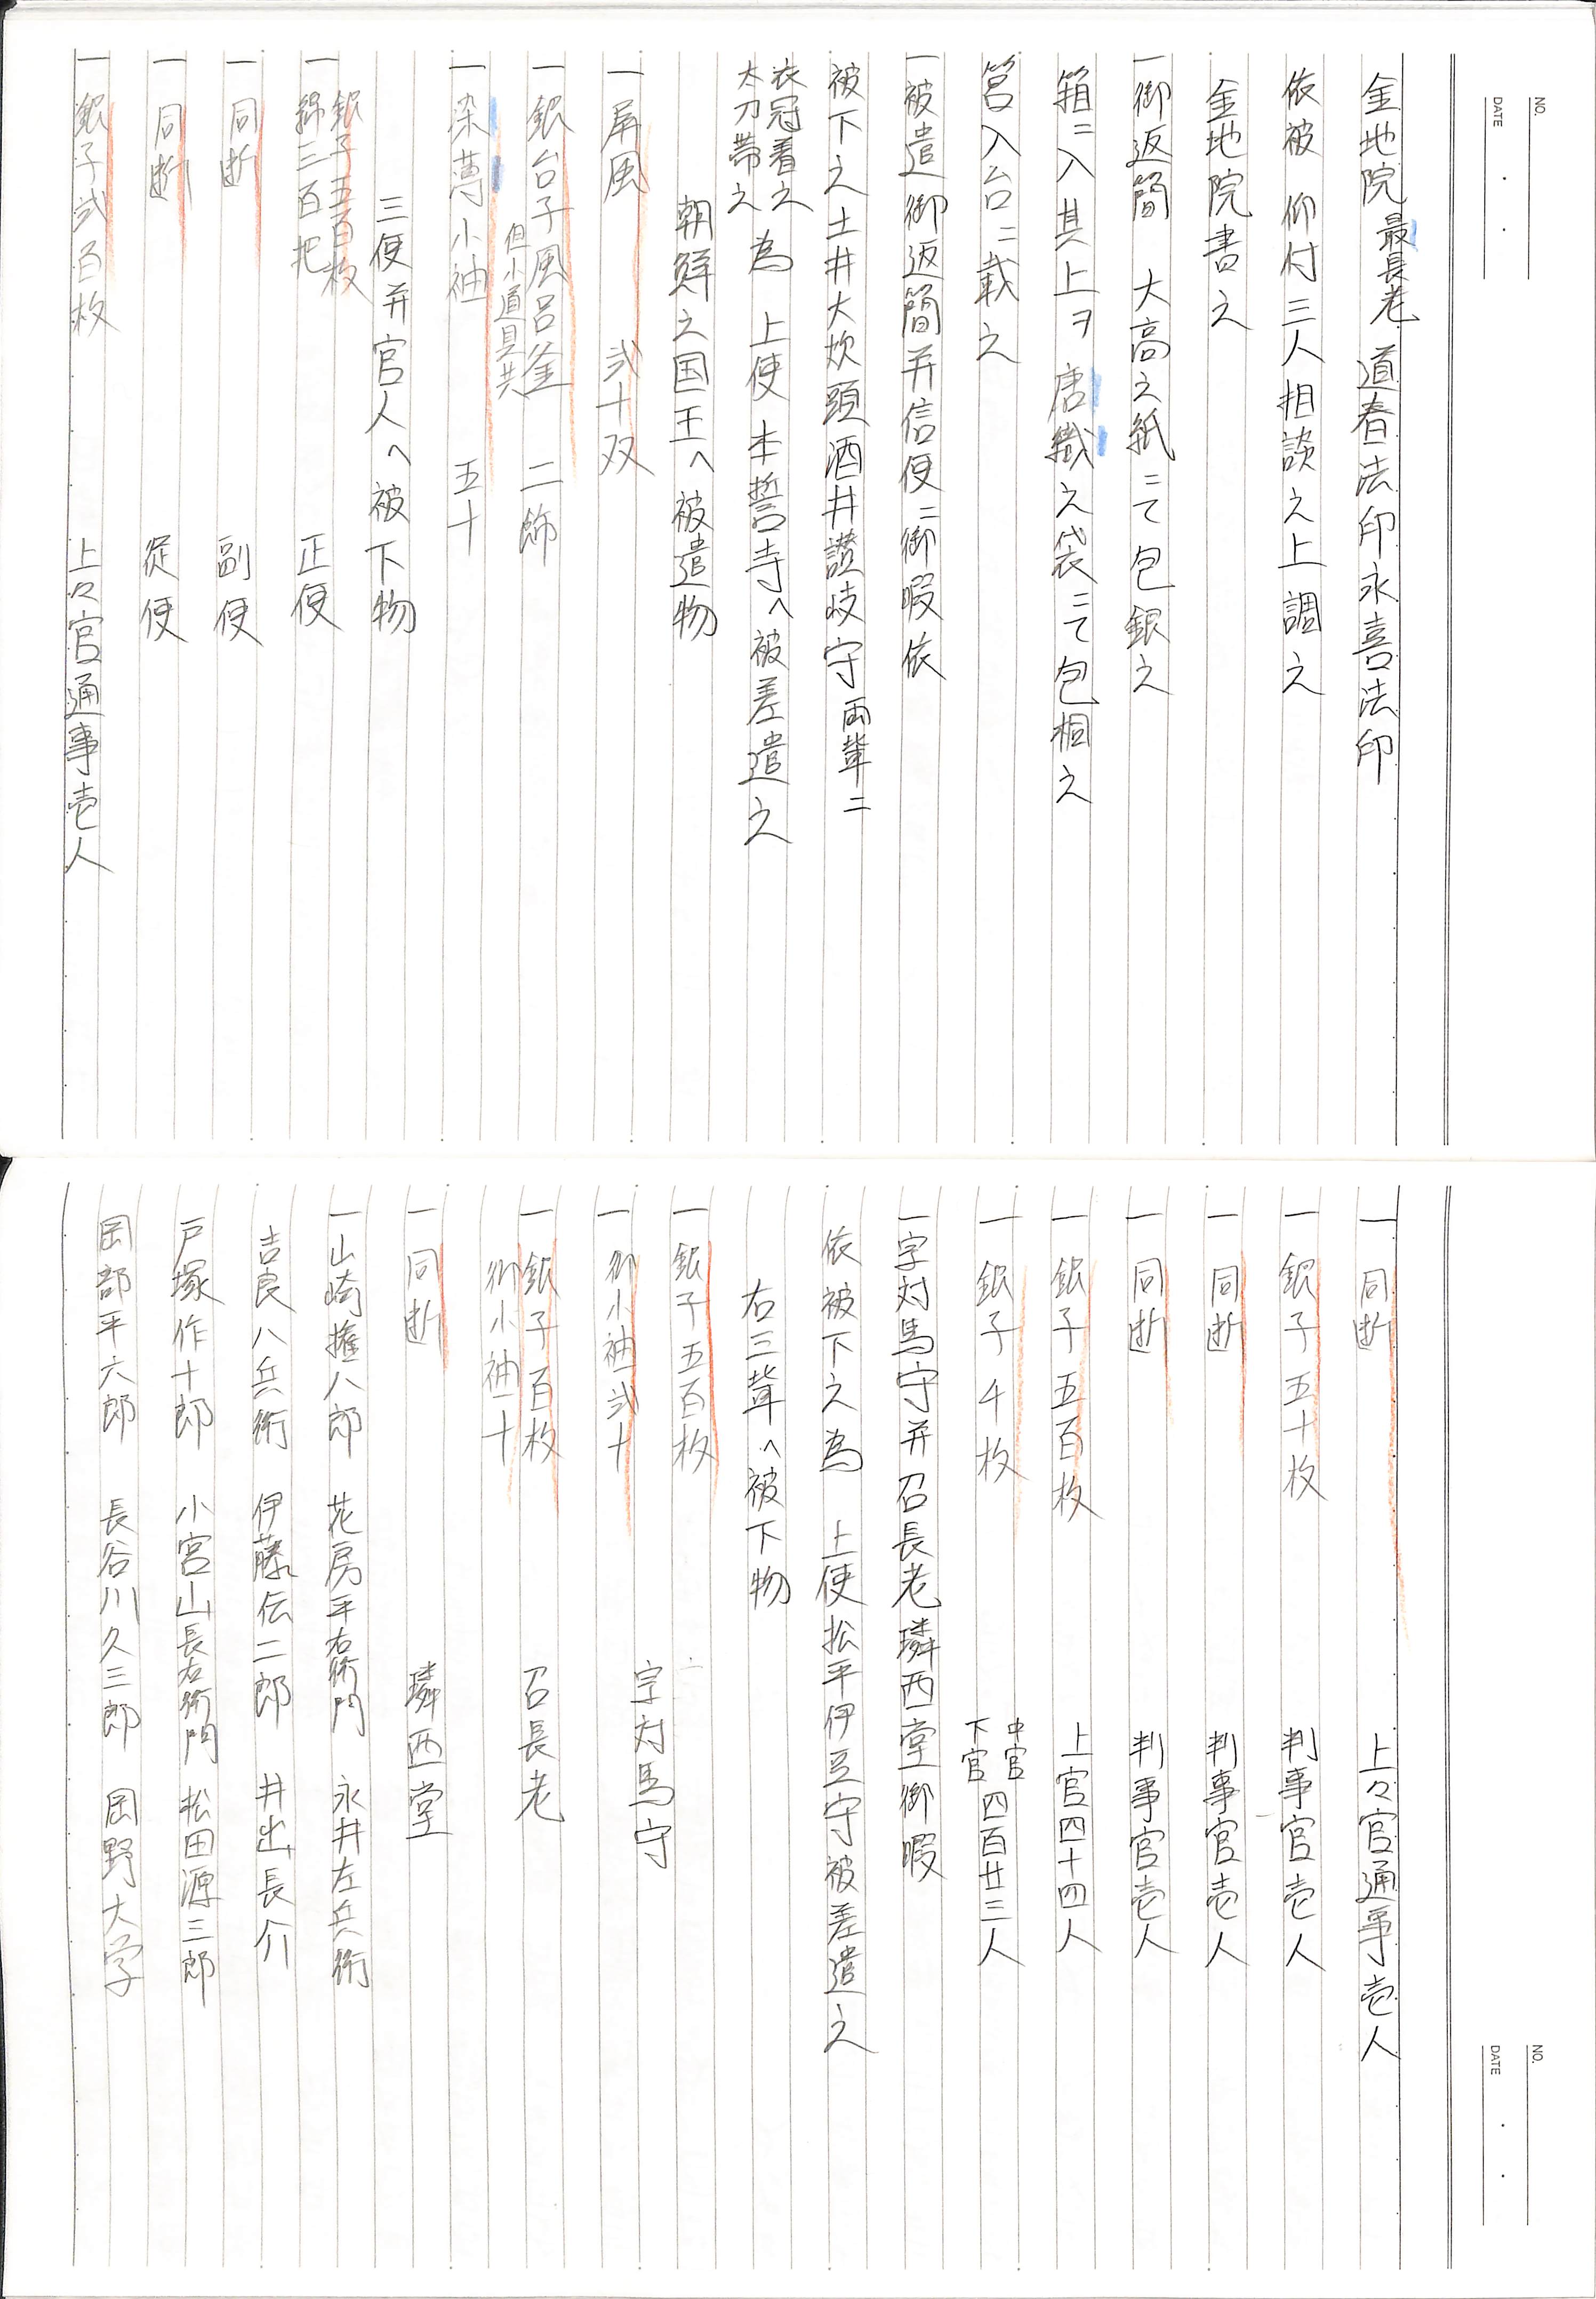 NO.
DATE
金地院最長老 道春法印永喜法印
依被 仰付三人相談之上調之
金地院書之
一御返簡 大高之紙ニて包銀之
箱ニ入其上ヲ唐織之袋ニて包桐之
筥入台ニ載之
一被遣御返簡并信使ニ御暇依
被下之土井大炊頭酒井讃岐守両輩ニ
衣冠着之
太刀帯之
為 上使本誓寺へ被差遣之
朝鮮之国王へ被遣物
一屏風 弐十双
一銀台子風呂釜 二飾
但小道具共
一染薄小袖 五十
三使并官人へ被下物
一銀子五百枚
綿三百把 正使
一同断 副使
一同断 従使
一銀子弐百枚 上々官通事壱人
NO.
DATE
一同断 上々官通事壱人
一銀子五十枚 判事官壱人
一同断 判事官壱人
一同断 判事官壱人
一銀子五百枚 上官四十四人
一銀子千枚 中官
下官 四百廿三人
一宗対馬守并召長老璘西堂御暇
依被下之為 上使松平伊豆守被差遣之
右三輩へ被下物
一銀子五百枚
一御小袖弐十 宗対馬守
一銀子百枚
御小袖十 召長老
一同断 璘西堂
一山崎権八郎 花房平右衛門 永井左兵衛
吉良八兵衛 伊藤伝二郎 井出長介
戸塚作十郎 小宮山長右衛門 松田源三郎
岡部平六郎 長谷川久三郎 岡野大学